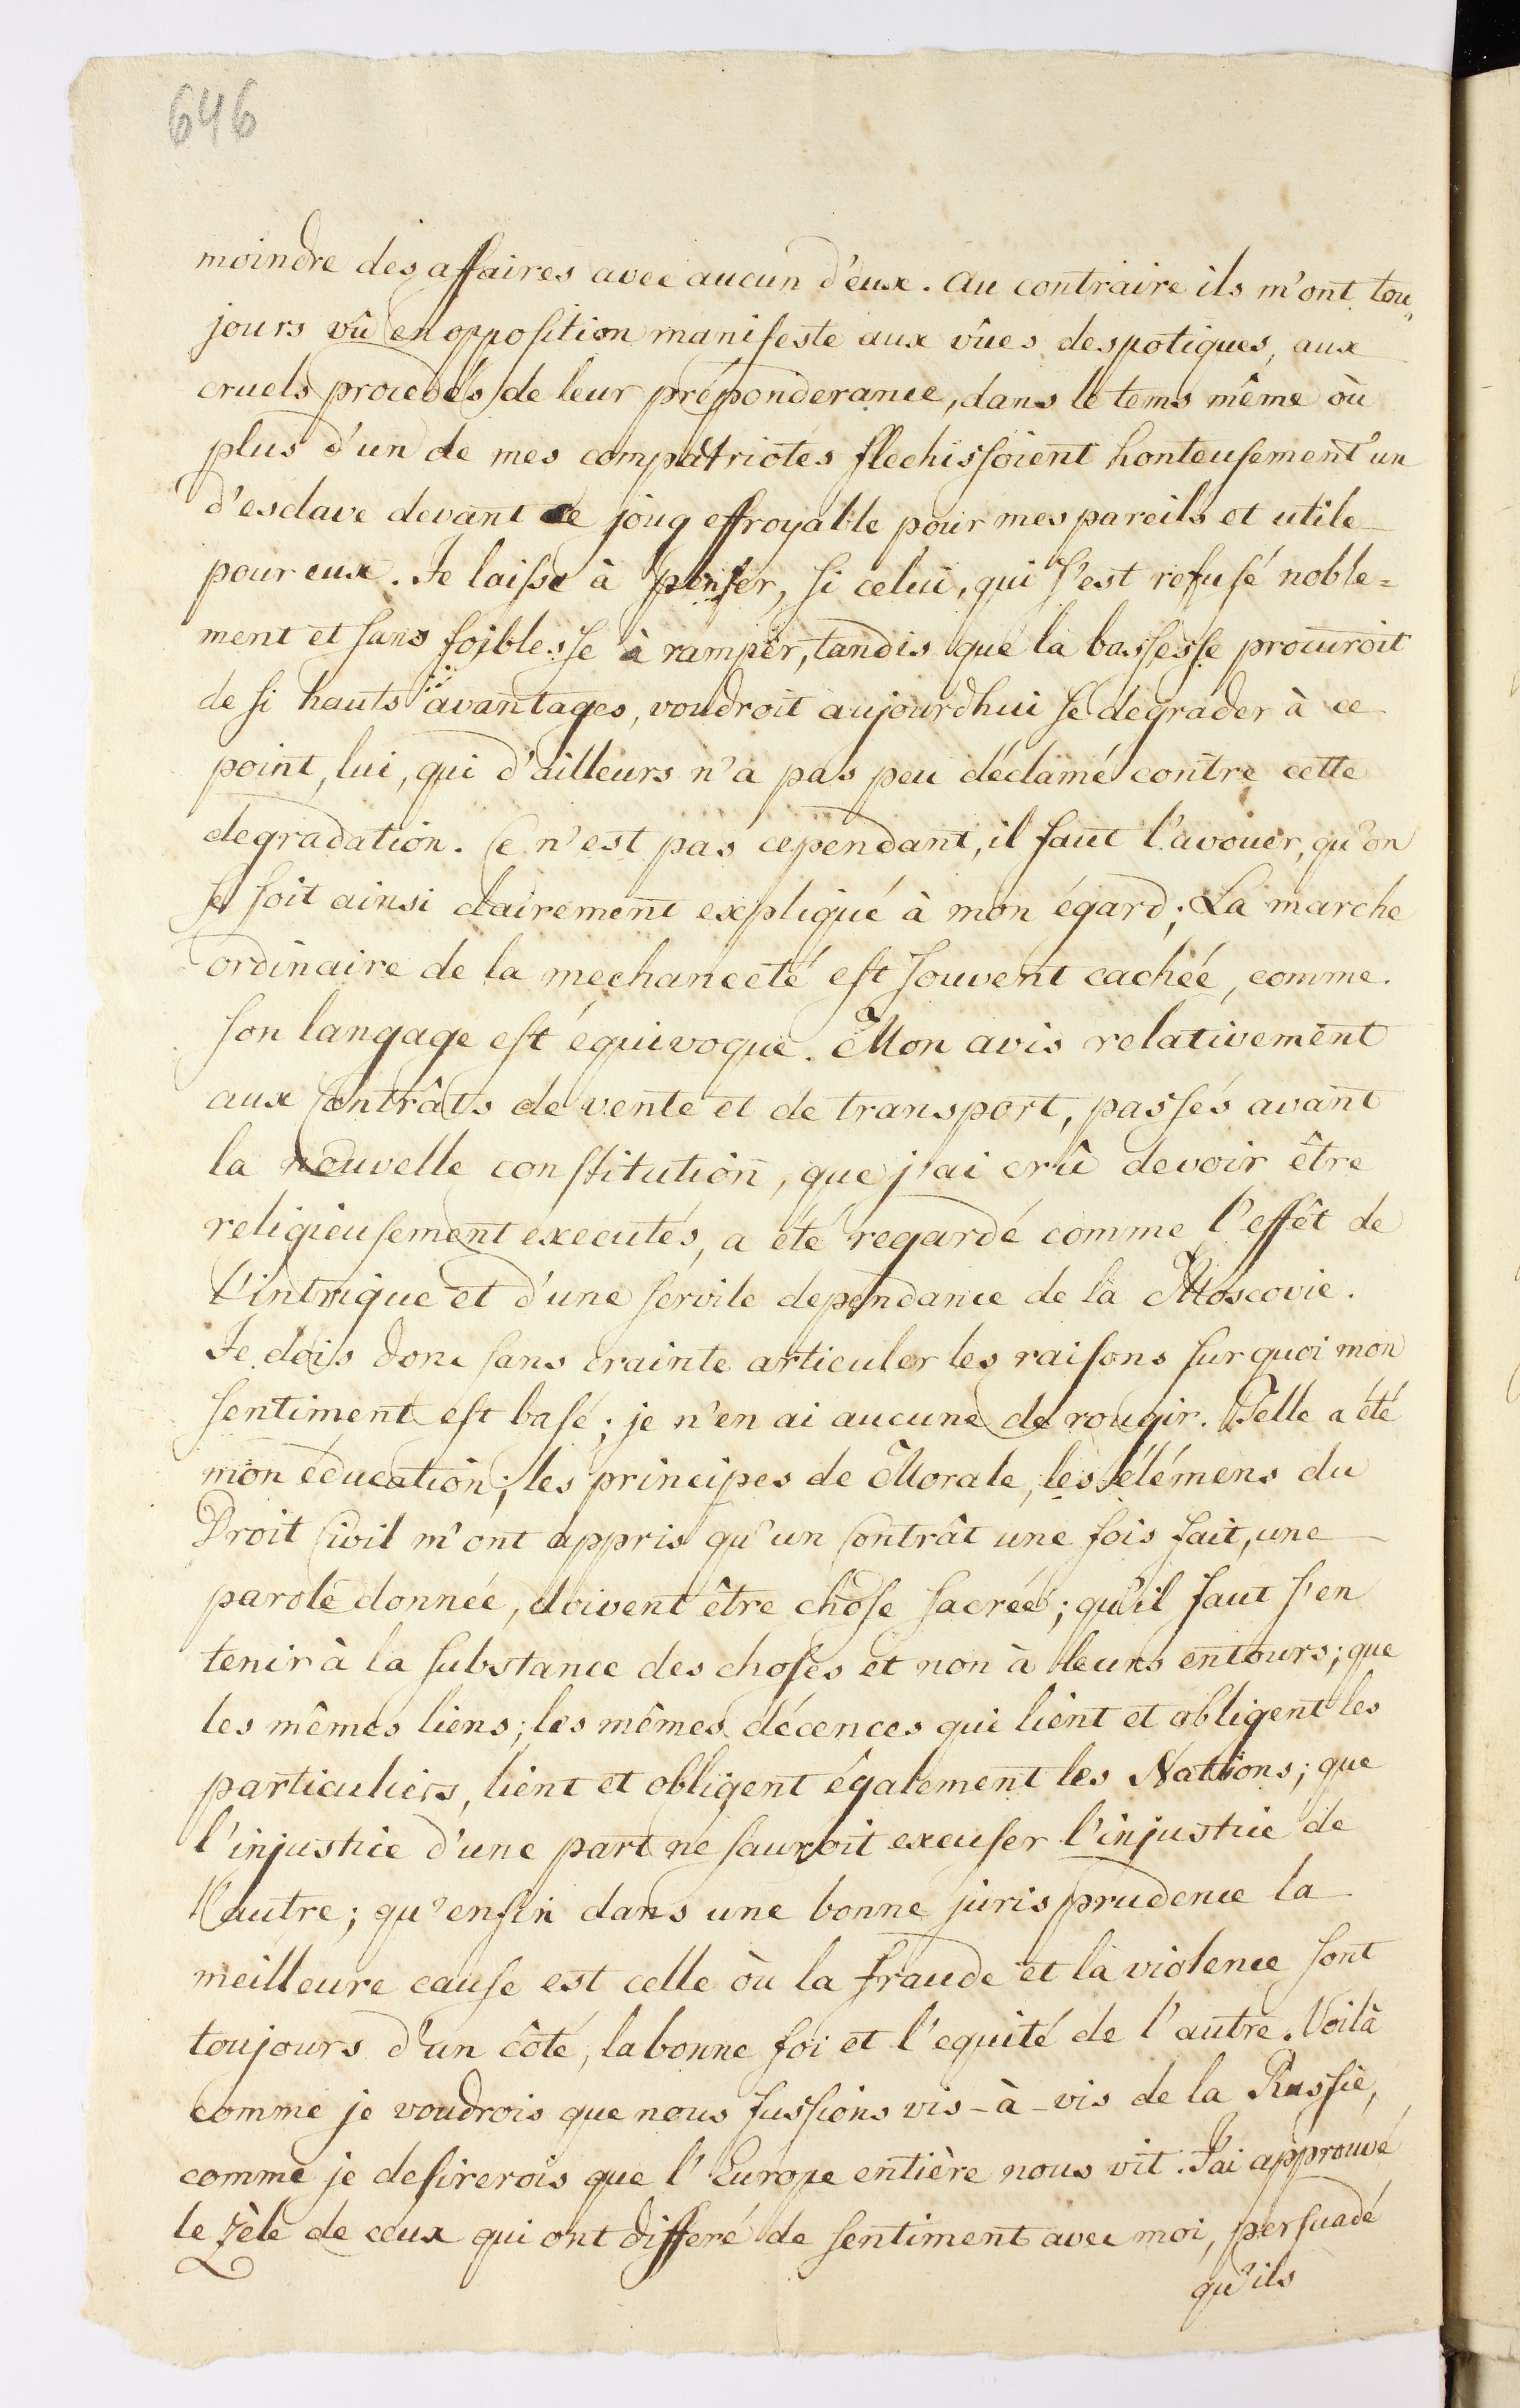 646
moindre des affaires avec aucun d'eux. Au contraire ils m'ont tou„
jours vû en opposition manifeste aux vûes despotiques, aux
cruels procedés de leur préponderance, dans le tems même où
plus d'un de mes compatriotes flechissoient honteusement un
d'esclave devant ce joug effroyable pour mes pareils et utile
pour eux. Je laisse à penser, si celui, qui s'est refusé noble=
ment et sans foiblesse à ramper, tandis que la bassesse procuroit
de si hauts avantages, voudroit aujourdhui se degrader à ce
point, lui, qui d'ailleurs n'a pas peu déclamé contre cette
degradation. Ce n'est pas cependant, il faut l'avouer, qu'on
se soit ainsi clairement expliqué à mon égard; La marche
ordinaire de la mechanceté est souvent cachée, comme
son langage est équivoque. Mon avis relativement
aux Contrâts de vente et de transport, passés avant
la nouvelle constitution, que j'ai crû devoir être
religieusement executés, a été regardé comme l'effêt de
l'intrigue et d'une servile dependance de la Moscovie.
Je dois donc sans crainte articuler les raisons sur quoi mon
sentiment est basé; je n'en ai aucune de rougir. Telle a été
mon éducation; les principes de Morale, les élémens du
Droit Civil m'ont appris qu'un Contrât une fois fait, une
parole donnée, doivent être chose sacrée; qu'il faut s'en
tenir à la substance des choses et non à leurs entours; que
les mêmes liens; les mêmes décences qui lient et obligent les
particuliers, lient et obligent également les Nations; que
l'injustice d'une part ne sauroit excuser l'injustice de
l'autre; qu'enfin dans une bonne jurisprudence la
meilleure cause est celle où la fraude et la violence sont
toujours d'un côté, la bonne foi et l'equité de l'autre. Voilà
comme je voudrois que nous fussions vis-à-vis de la Russie,
comme je desirerois que l'Europe entière nous vit. J'ai approuvé
le zèle de ceux qui ont differé de sentiment avec moi, persuadé
qu'ils